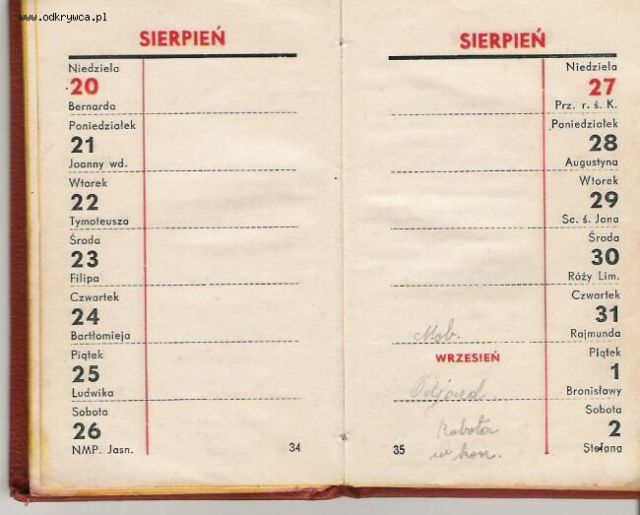 www.odkrywca.pl
SIERPIEŃ
Niedziela
20
Bernarda
Poniedziałek
21
Joanny wd.
Wtorek
22
Tymoteusza
Środa
23
Filipa
Czwartek
24
Bartłomieja
Piątek
25
Ludwika
Sobota
26
NMP. Jasn.
34
SIERPIEŃ
Niedziela
27
Prz. r. ś. K.
Poniedziałek
28
Augustyna
Wtorek
29
Sc. ś. Jana
Środa
30
Róży Lim.
Czwartek
31
Mob.
Rajmunda
WRZESIEŃ
Piątek
1
Odjazd
Bronisławy
Sobota
2
Robota
w kon.
Stefana
35